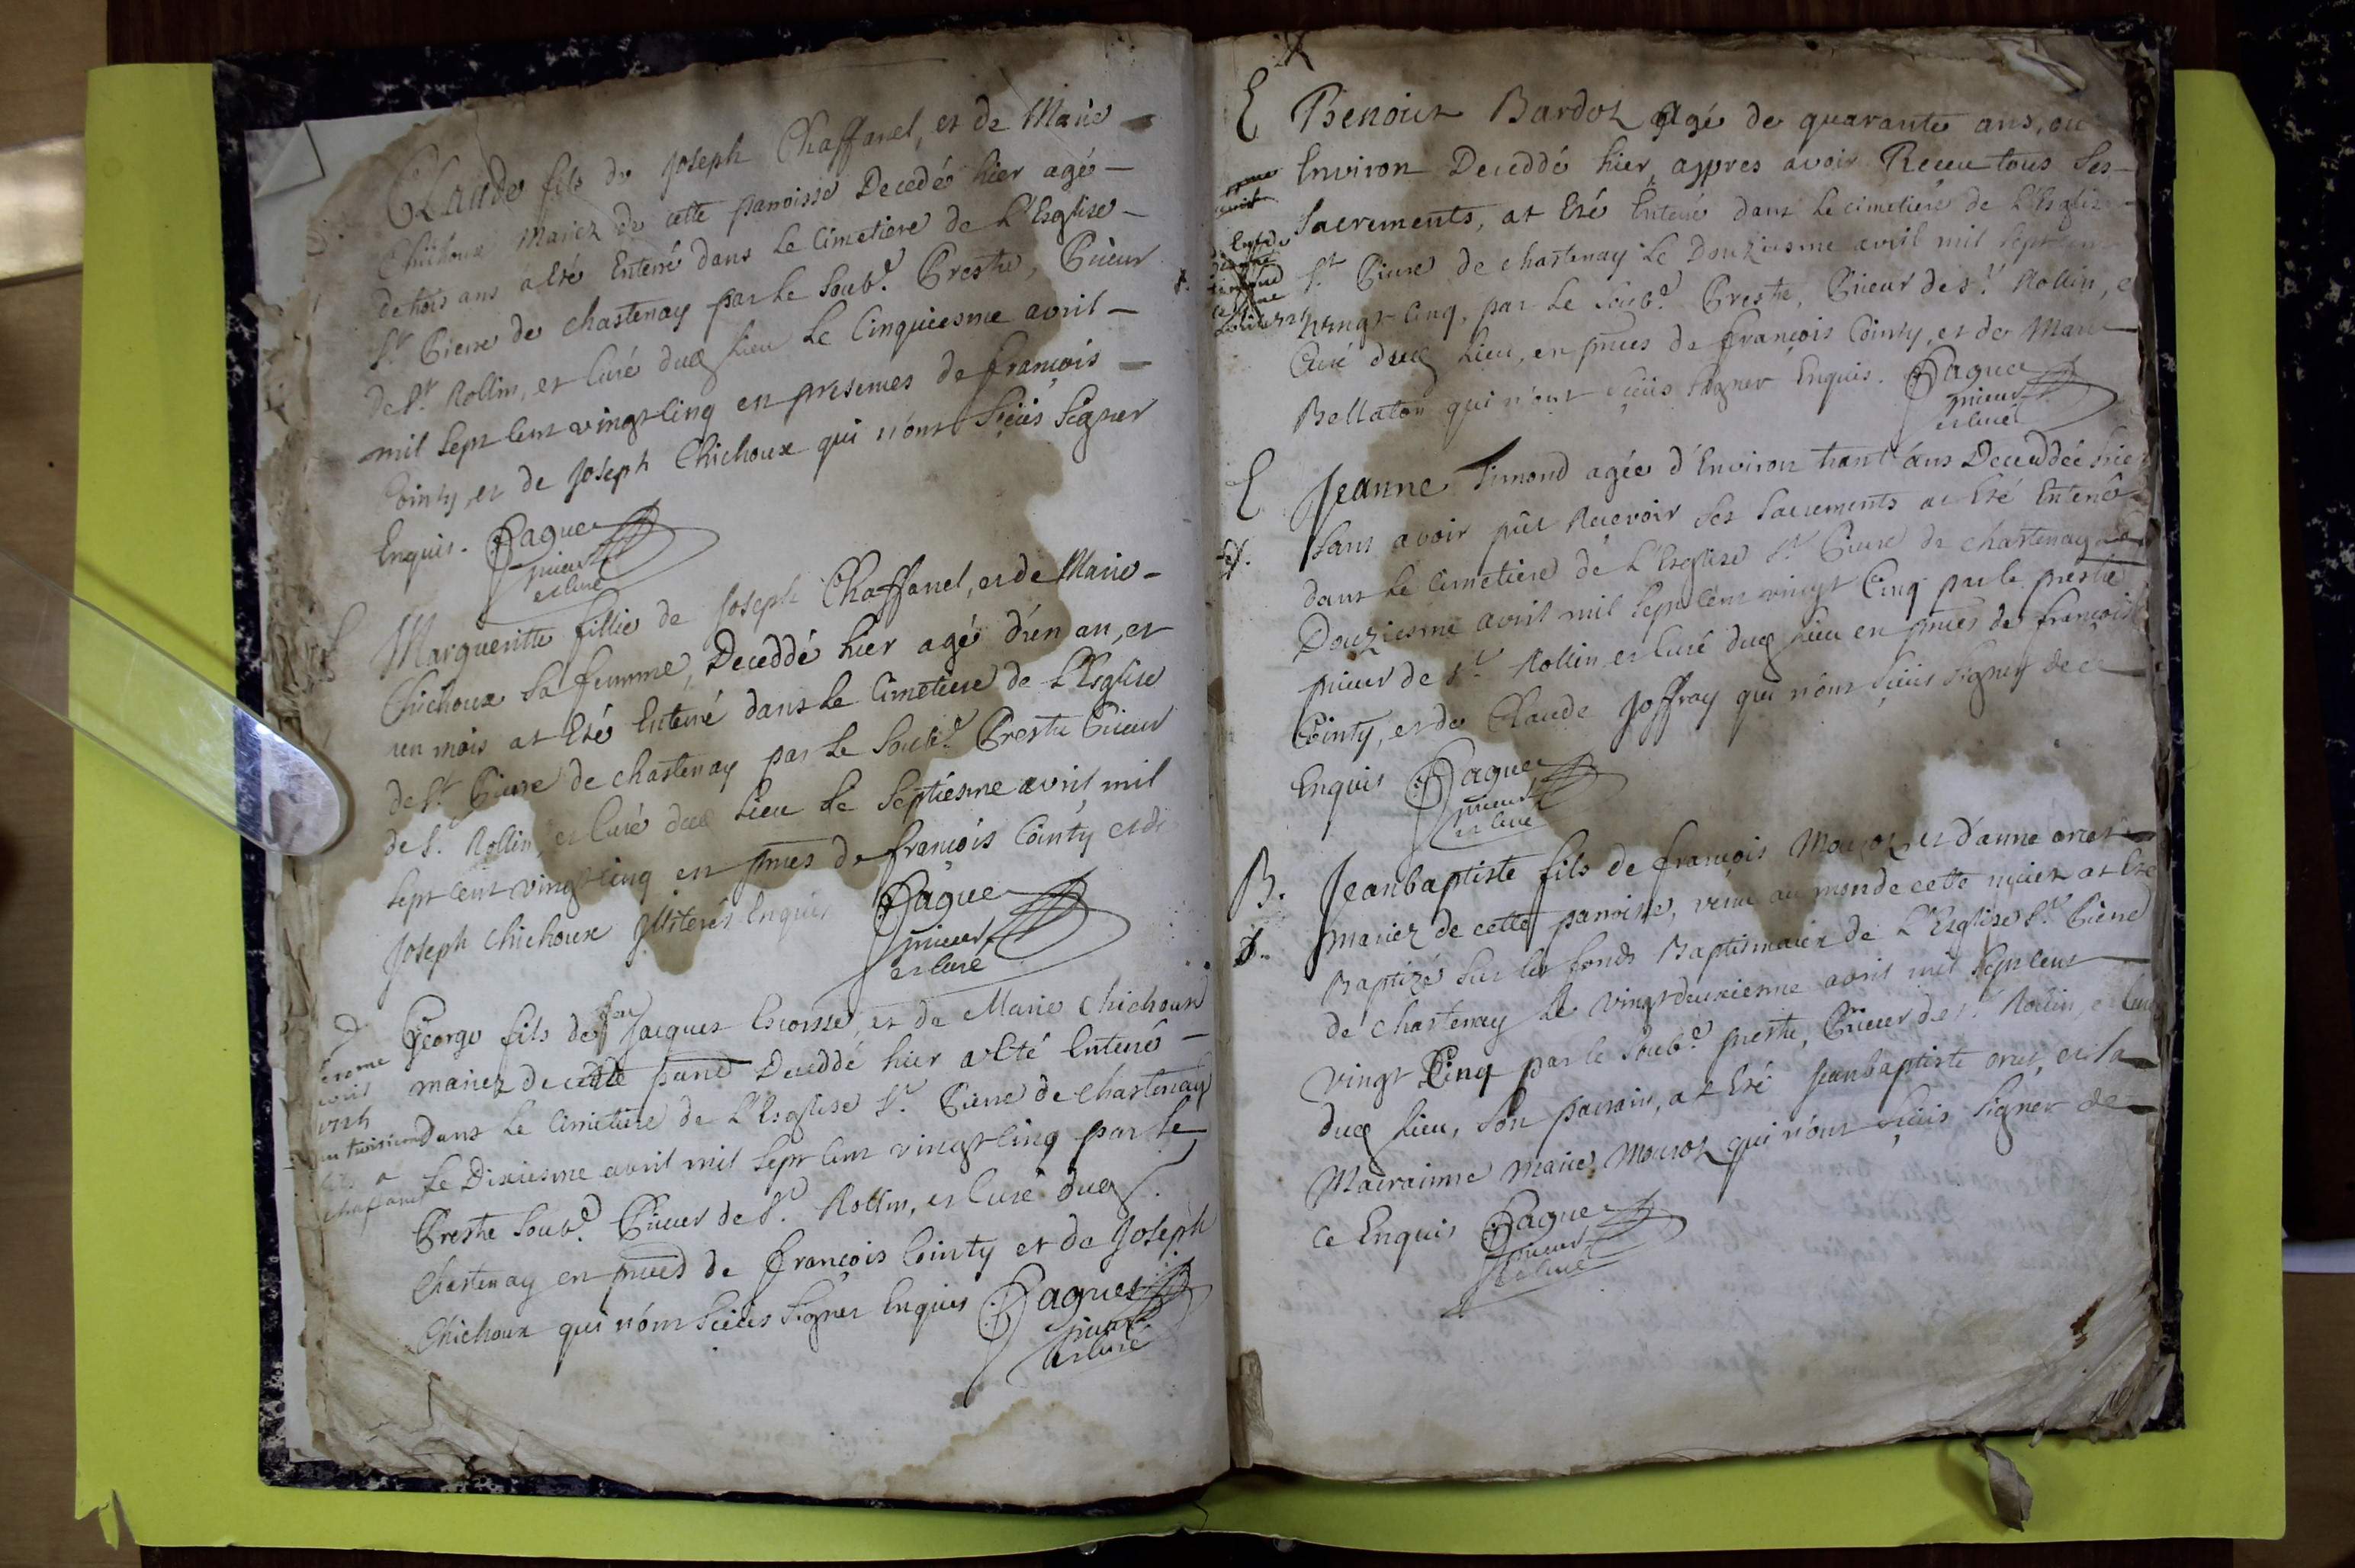 Claude fils de Joseph Chaffanel, et de Marie
Chichoux mariez de cette parroisse Decedéé hier agé
de trois ans at eté Enterré dans le Cimetiere de L'Esglise
St. Pierre de chastenay par le Soub.é Prestre, Prieur
de St. Rollin, et Curé dud Lieu le Cinquiesme avril
mil sept cent vingt cinq en presences de françois
Cointy, et de Joseph Chichoux qui n'ont sçeüs signer
Enquis. Pague
prieur
et curé
E
Margueritte fillie de Joseph Chaffanel, et de Marie
Chichoux sa femme, Deceddé hier agé d'un an, et
un mois at Eté Enterré dans le Cimetiere de L'Esglise
de St. Pierre de chastenay par le Soub.é Prestre Prieur
de St. Rollin, et Curé dud Lieu le Septiesme avril mil
sept cent vingt cinq en pnces de françois Cointy et de
Joseph Chichoux Illiterés Enquis Pague
prieur
et curé
George fils de feu Jacques Ecoisse, et de Marie Chichoux
mariez de cette parsse Deceddé hier at Eté Enterré
dans le Cimetiere de L'Esglise St. Pierre de chastenay
Le Dixiesme avril mil sept cent vingt cinq par le
Prestre Soub.é Prieur de St. Rollin, et Curé dud
Chastenay en pnces de françois Cointy et de Joseph
Chichoux qui n'ont sçeüs signer Enquis Pague
prieur
et curé
1725
chaffanel
E Benoict Bardot agé de quarante ans, ou
Environ Deceddé hier, appres avoir Receu tous ses
Sacrements, at Eté Enterré dans le cimetiere de L'Esglize
St. Pierre de chastenay le Douziesme avril mil sept cent
vingt cinq, par le Soub.é Prestre, Prieur de St. Rollin, et
Curé dud Lieu, en pnces de françois Cointy, et de Marc
Bellaton qui n'ont sçeüs signer Enquis. Pague
prieur
et curé
E Jeanne Timond agée d'Environ trant ans Deceddée hier
sans avoir pût Recevoir ses Sacrements at Eté Enterré
dans le Cimetiere de L'Esglise St. Pierre de chastenay le
Douziesme avril mil sept cent vingt Cinq par le prestre
prieur de St. Rollin et Curé dud Lieu en pnces de françois
Cointy, et de Claude Joffray qui n'ont sçeüs signer de ce
Enquis Pague
prieur
et curé
B. Jeanbaptiste fils de françois Mourot, et d'anne oriet
mariez de cette parroisse, venu au monde cette nuict at Eté
Baptizé sur les fonds Baptismaux de L'Esglise St. Pierre
de chastenay le vingt deuxiesme avril mil sept cent
vingt Cinq par le Soub.é prestre, Prieur de St. Rollin, et Curé
dud Lieu, son parrain, at Eté Jeanbaptiste oriet, et sa
Marrainne marie Mourot qui n'ont sçeüs signer de
ce Enquis Pague
prieur
et curé